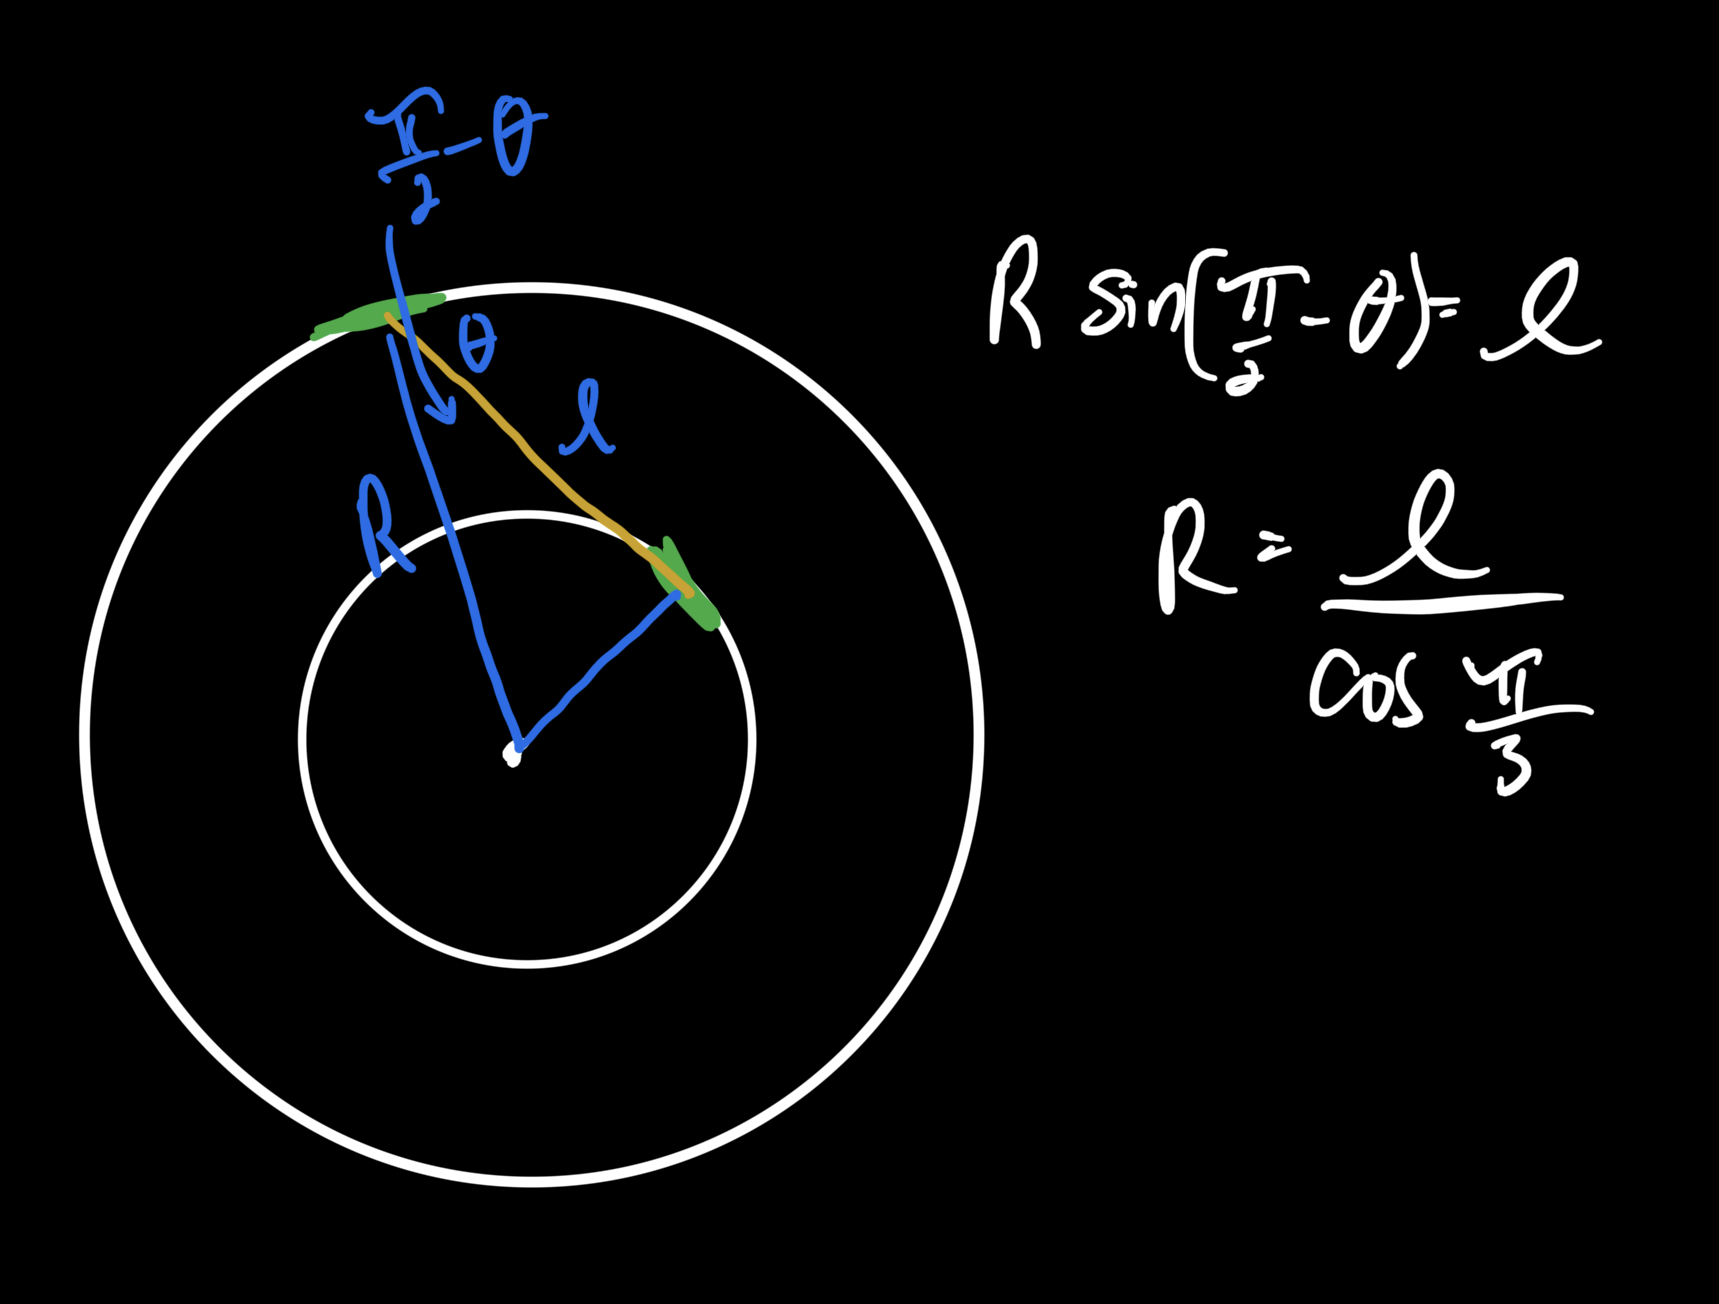 π/2 - θ
θ
l
R
R sin(π/2 - θ) = l
R = l / cos π/3